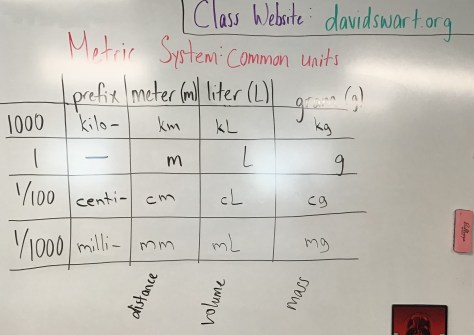 Class Website: davidswart.org
Metric System: Common units
prefix meter (m) liter (L) gram (g)
1000 kilo- km kL kg
1 — m L g
1/100 centi- cm cL cg
1/1000 milli- mm mL mg
distance volume mass